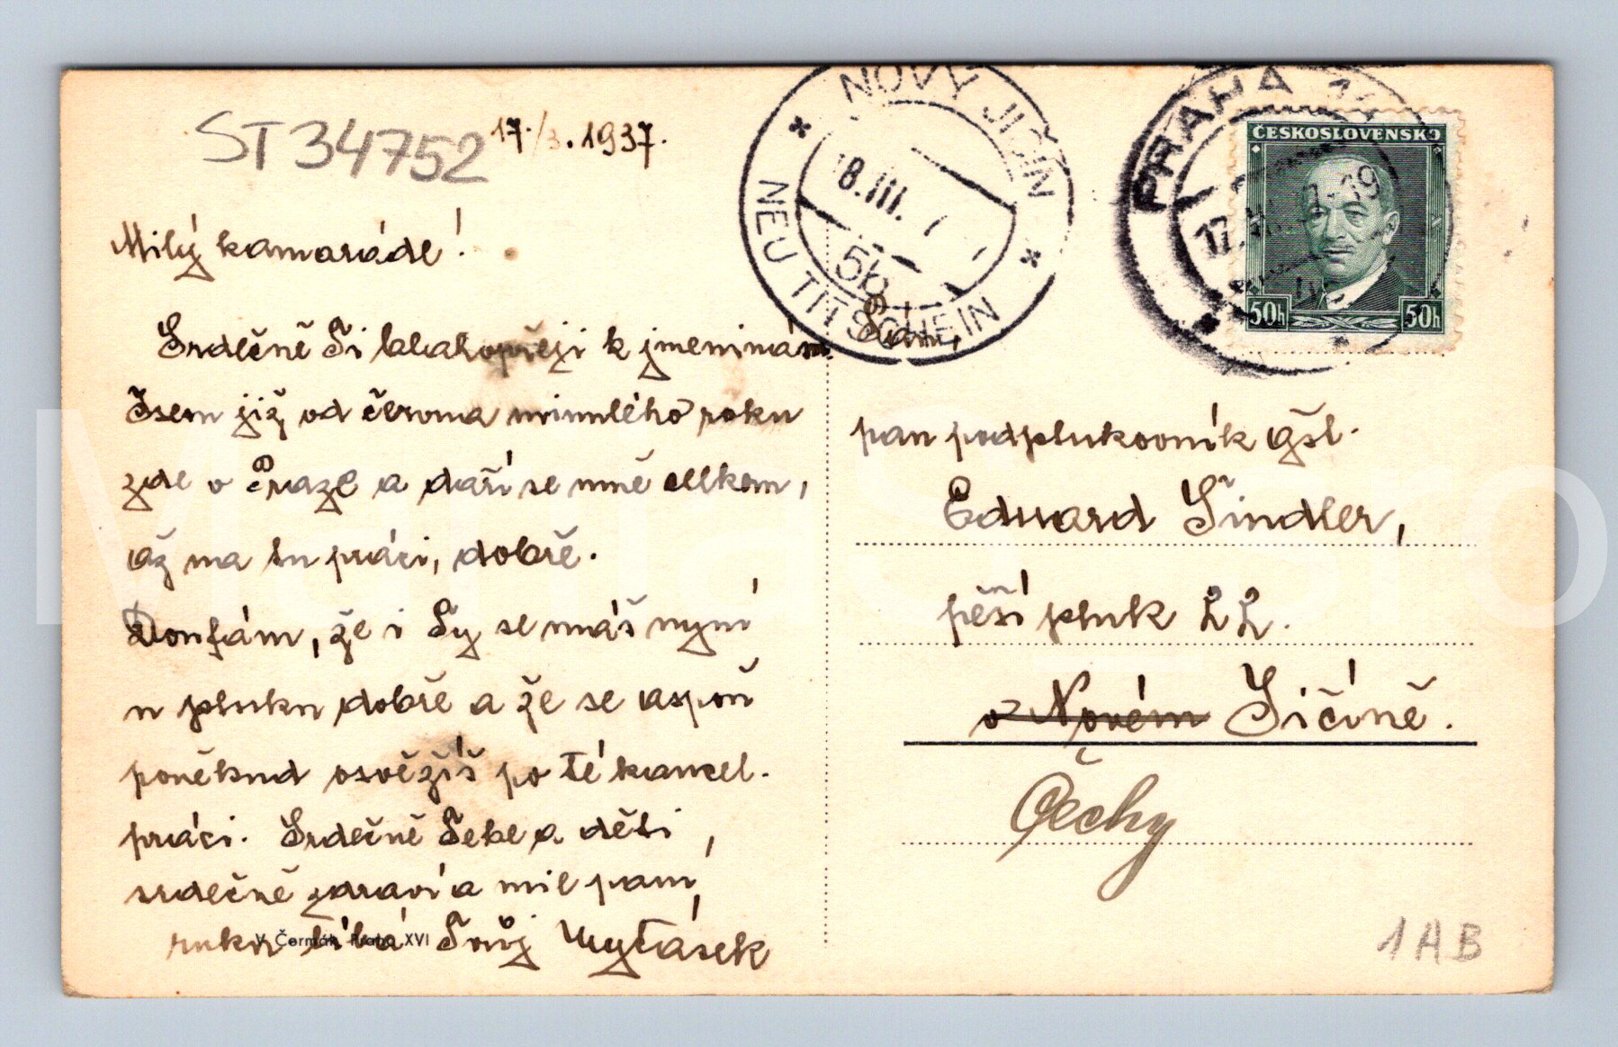 ST 34752
17./3. 1937.
Milý kamaráde!
Srdečně Ti blahopřeji k jmeninám
Jsem již od června minulého roku
zde v Praze a daří se mně celkem,
až na tu práci, dobře.
Doufám, že i Ty se máš nyní
u pluku dobře a že se aspoň
poněkud osvěžíš po té kancel.
práci. Srdečně Tebe a děti,
srdečně zdraví a mil. paní,
ruku líbá Tvůj
V. Čermák, Praha XVI
NOVÝ JIČÍN
18.III.
5b
NEU TITSCHEIN
PRAHA
17. 19
ČESKOSLOVENSKO
50h 50h
pan podplukovník gšt.
Eduard Šindler,
pěší pluk 22.
v Novém Jičíně.
Čechy
1AB